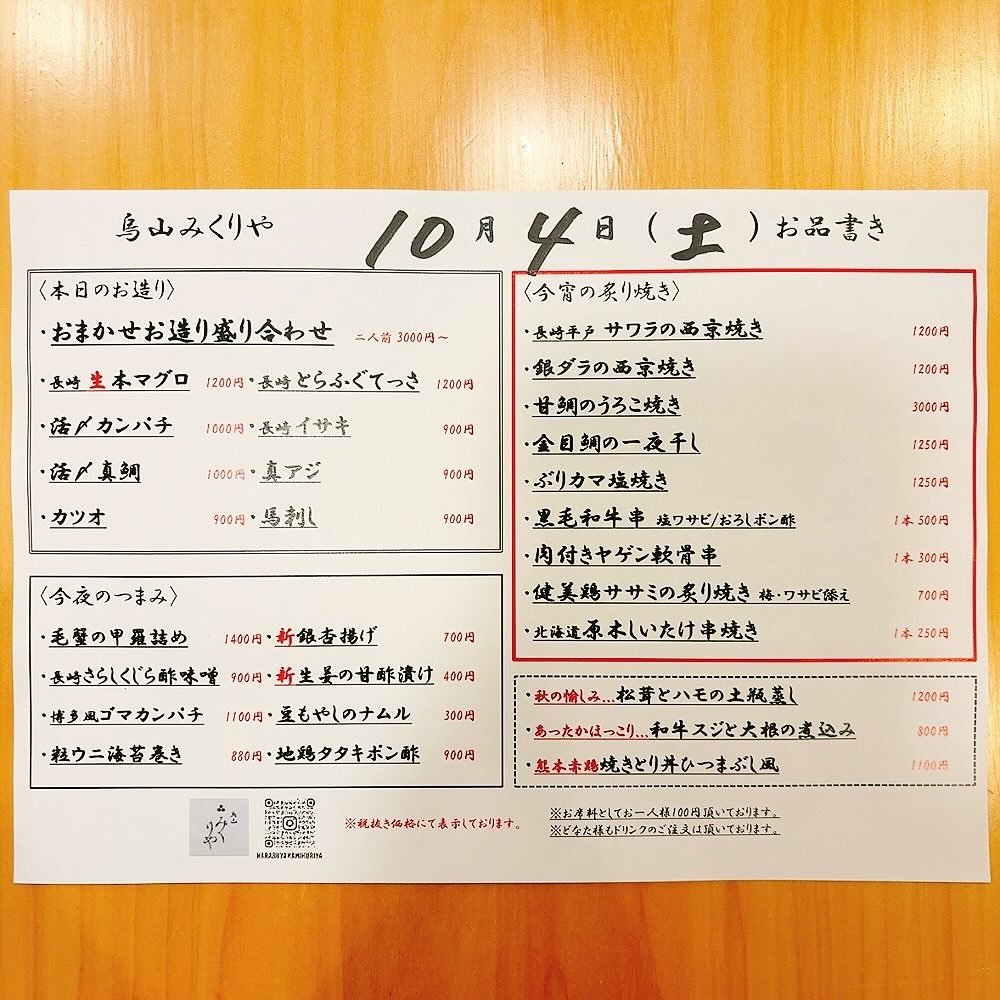 烏山みくりや 10月4日(土)お品書き
〈本日のお造り〉
・おまかせお造り盛り合わせ 二人前 3000円〜
・長崎 生本マグロ 1200円
・長崎とらふぐてっさ 1200円
・活〆カンパチ 1000円
・長崎イサキ 900円
・活〆真鯛 1000円
・真アジ 900円
・カツオ 900円
・馬刺し 900円
〈今夜のつまみ〉
・毛蟹の甲羅詰め 1400円
・新銀杏揚げ 700円
・長崎さらしくじら酢味噌 900円
・新生姜の甘酢漬け 400円
・博多風ゴマカンパチ 1100円
・豆もやしのナムル 300円
・粒ウニ海苔巻き 880円
・地鶏タタキポン酢 900円
〈今宵の炙り焼き〉
・長崎平戸 サワラの西京焼き 1200円
・銀ダラの西京焼き 1200円
・甘鯛のうろこ焼き 3000円
・金目鯛の一夜干し 1250円
・ぶりカマ塩焼き 1250円
・黒毛和牛串 塩ワサビ/おろしポン酢 1本 500円
・肉付きヤゲン軟骨串 1本 300円
・健美鶏ササミの炙り焼き 梅・ワサビ添え 700円
・北海道原木しいたけ串焼き 1本 250円
・秋の愉しみ…松茸とハモの土瓶蒸し 1200円
・あったかほっこり…和牛スジと大根の煮込み 800円
・熊本赤鶏焼きとり丼ひつまぶし風 1100円
みくりや
KARASUYAMAMIKURIYA
※税抜き価格にて表示しております。
※お席料としてお一人様100円頂いております。
※どなた様もドリンクのご注文は頂いております。